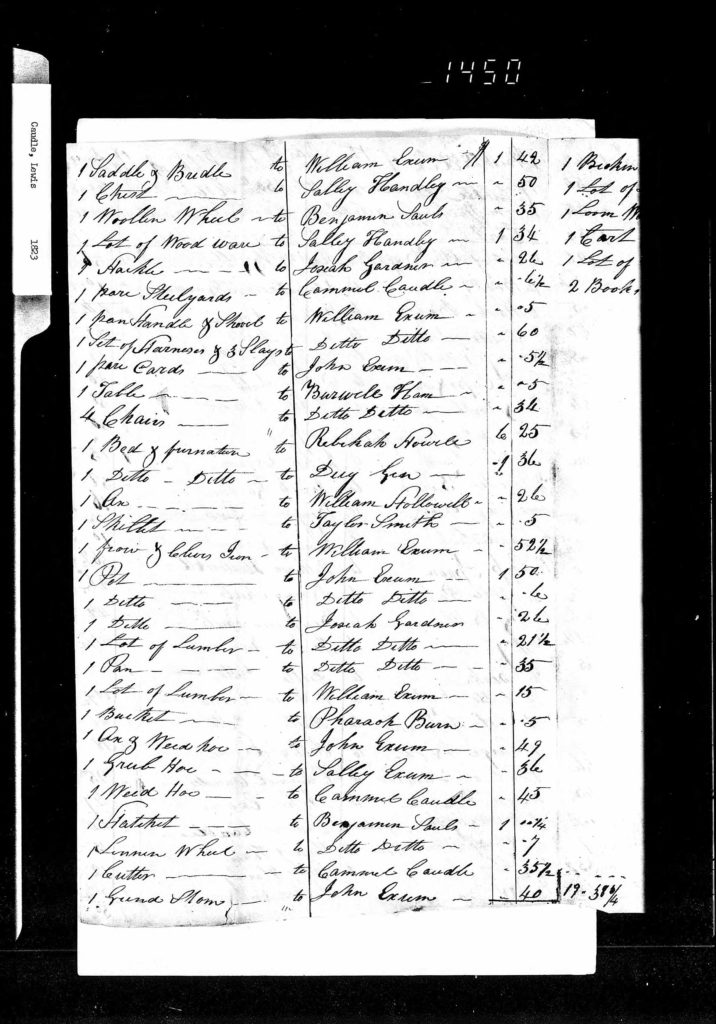 1450
Caudle, Lewis 1823
1 Saddle & Bridle to William Exum 1 42
1 Chest to Salley Handley " 50
1 Woollen Wheel to Benjamin Sauls " 35
1 Lot of Wood ware to Salley Handley 1 34
1 Hackle to Josiah Gardner " 26
1 pare Steelyards to Cammel Caudle " 6½
1 pan Handle & Shovel to William Exum " 05
1 Set of Harneses & 3 Slays to Ditto Ditto " 60
1 pare Cards to John Exum " 5½
1 Table to Burwell Ham " 5
4 Chairs to Ditto Ditto " 34
1 Bed & furnature to Rebekah Howell 6 25
1 Ditto Ditto to 1 36
1 Ax to William Hollowell " 26
1 Skillet to Taylor Smith " 5
1 frow & Clevis Iron to William Exum " 52½
1 Pot to John Exum 1 50
1 Ditto to Ditto Ditto " 6
1 Ditto to Josiah Gardner " 26
1 Lot of Lumber to Ditto Ditto " 21½
1 Pan to Ditto Ditto " 35
1 Lot of Lumber to William Exum " 15
1 Bucket to Pharaoh Burn " 5
1 Ax & Weed hoe to John Exum " 49
1 Grub Hoe to Salley Exum " 36
1 Weed Hoe to Cammel Caudle " 45
1 Hatchet to Benjamin Sauls 1
1 Linnen Wheel to Ditto Ditto " 7
1 Cutter to Cammel Caudle " 35½
1 Grind Stone to John Exum " 40 19
1
1 Lot of
1 Loom
1 Cart
1 Lot of
2 Books